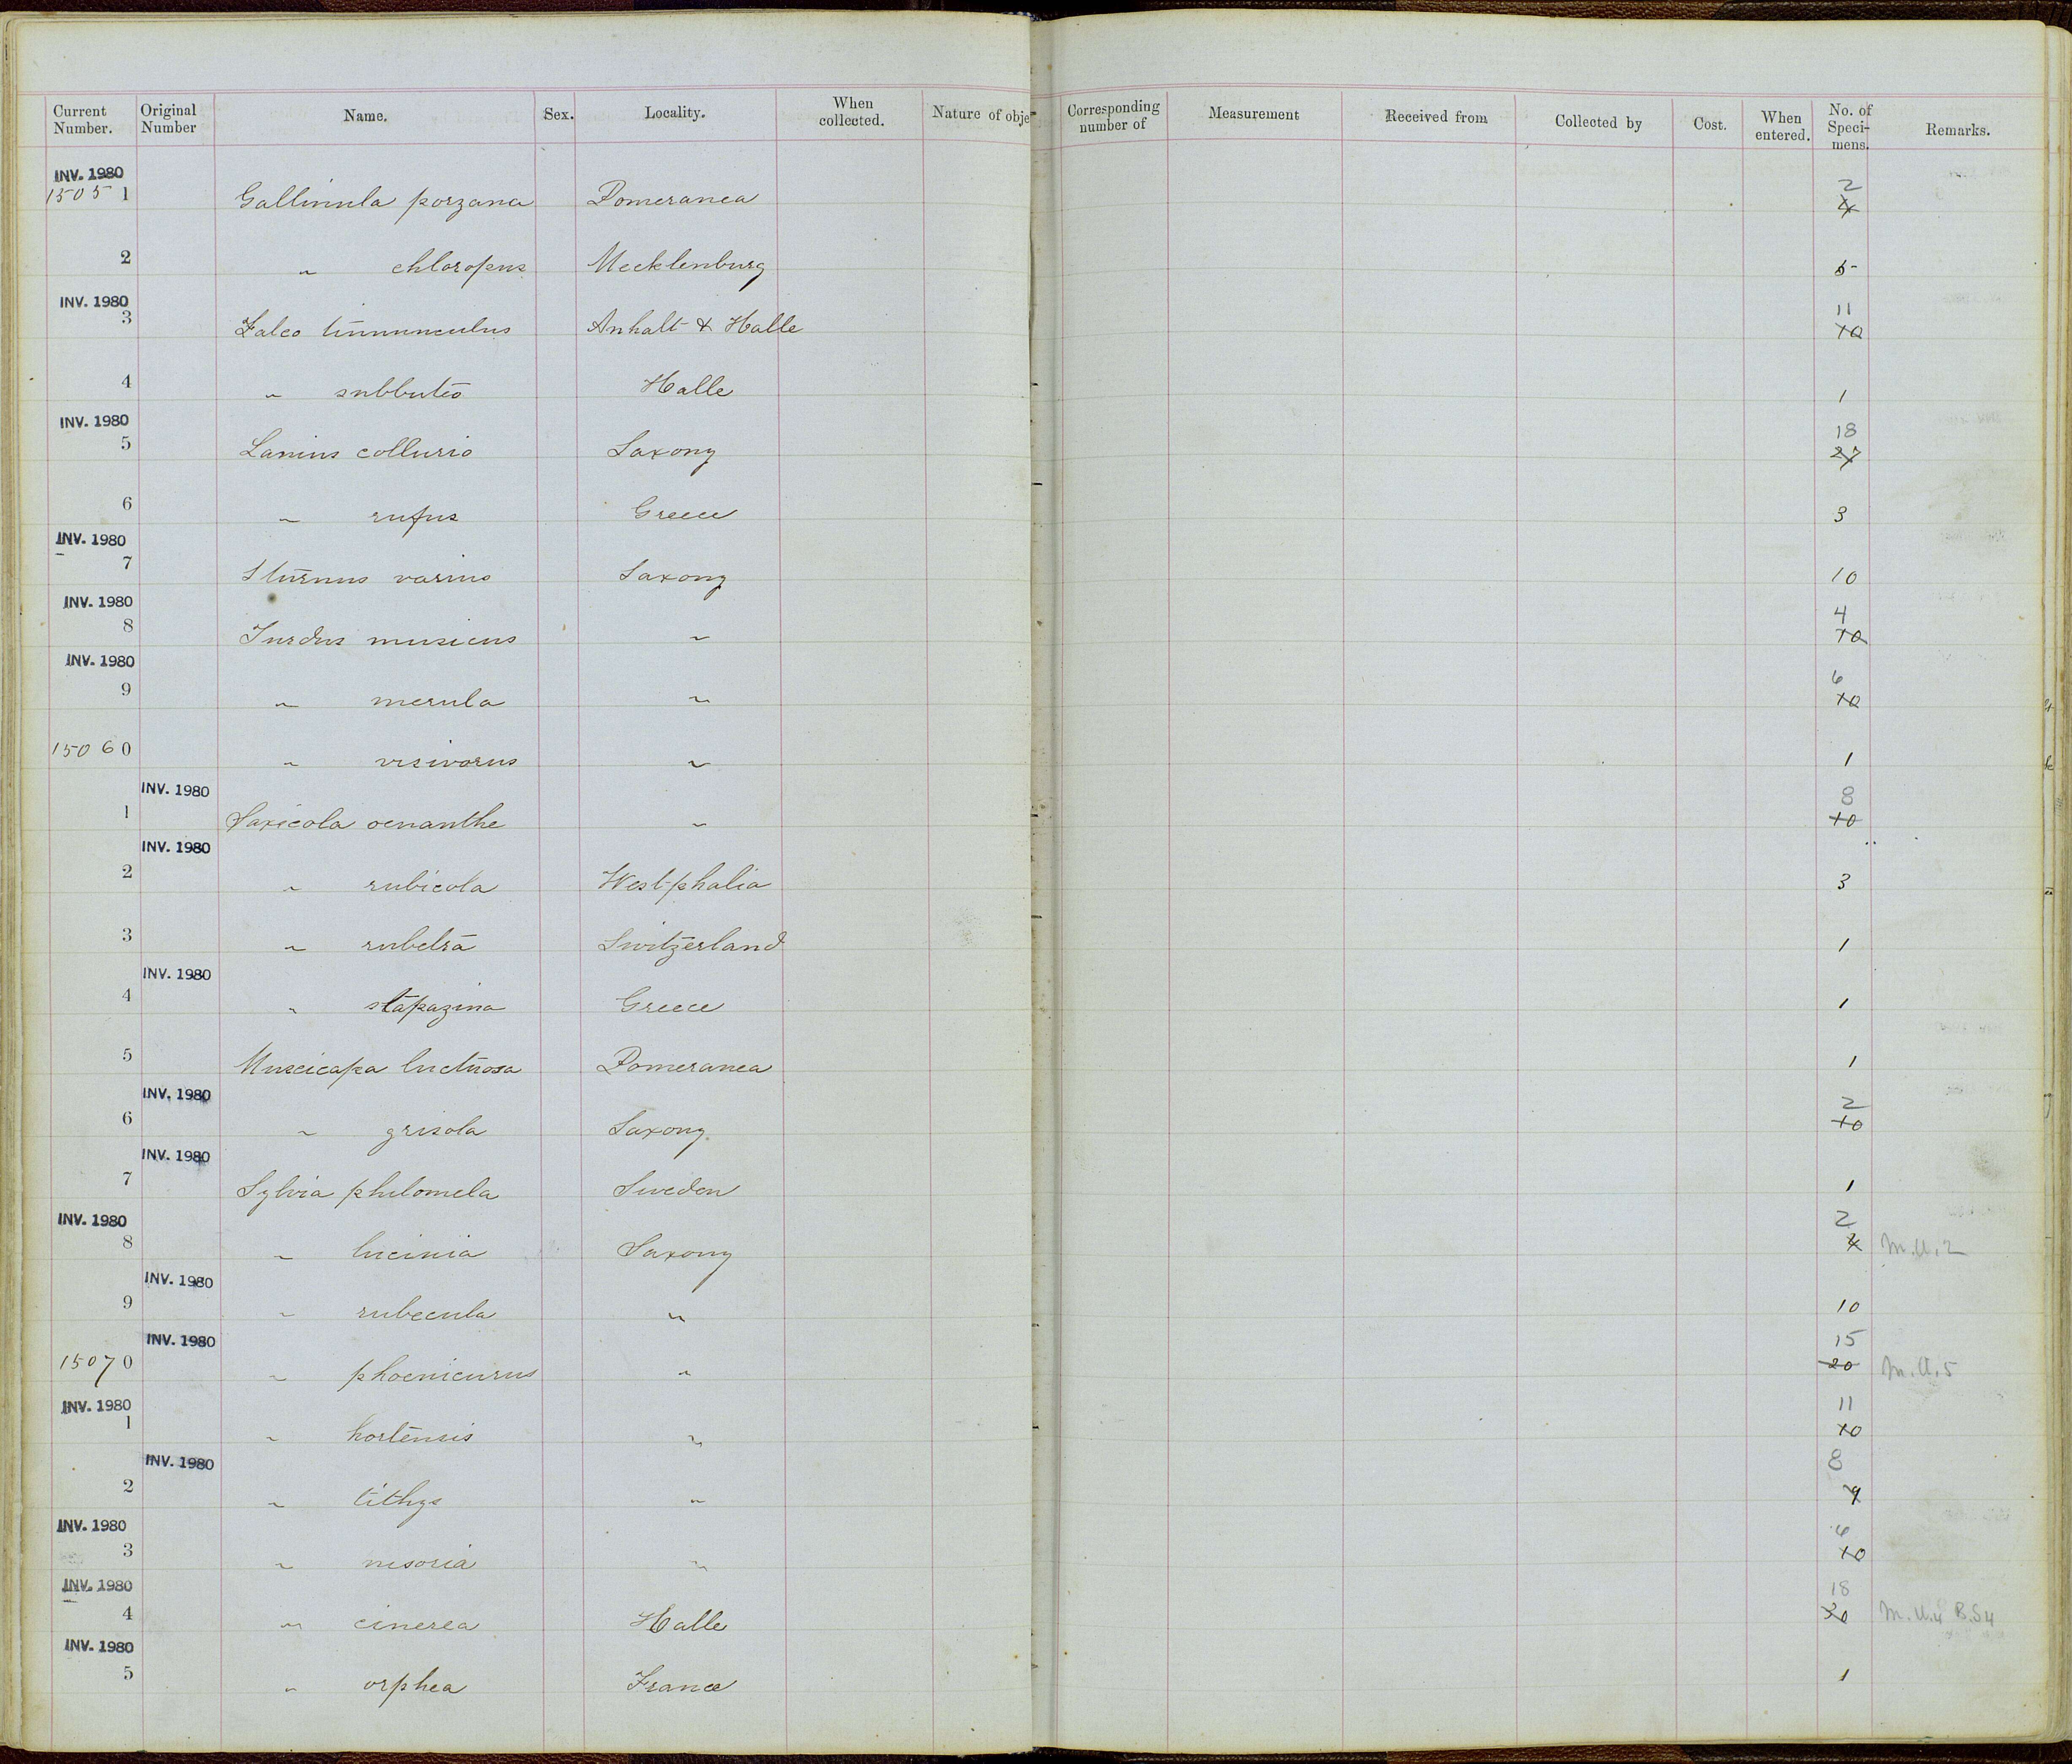 Current Number. Original Number Name. Sex. Locality. When collected. Nature of obje Corresponding number of Measurement Received from Collected by Cost. When entered. No. of Speci-mens. Remarks.
INV. 1980 2
15051 Gallinula porzana Pomeranea 4
2 " chloropus Mecklenburg 5
INV. 1980 11
3 Falco tinnunculus Anhalt & Halle 10
4 " subbuteo Halle 1
INV. 1980 18
5 Lanius collurio Saxony 27
6 " rufus Greece 3
INV. 1980
7 Sturnus varius Saxony 10
INV. 1980 4
8 Turdus musicus " 10
INV. 1980 6
9 " merula " 10
15060 " visivorus " 1
INV. 1980 8
1 Saxicola oenanthe " 10
INV. 1980
2 " rubicola Westphalia 3
3 " rubetra Switzerland 1
INV. 1980
4 " stapazina Greece 1
5 Muscicapa luctuosa Pomeranea 1
INV. 1980 2
6 " grisola Saxony 10
INV. 1980
7 Sylvia philomela Sweden 1
INV. 1980 2
8 " lucinia Saxony 4 M.U.2
INV. 1980
9 " rubecula " 10
INV. 1980 15
15070 " phoenicurus " 20 M.U.5
INV. 1980 11
1 " hortensis " 10
INV. 1980 8
2 " tithys " 9
INV. 1980 6
3 " nisoria " 10
INV. 1980 18
4 " cinerea Halle 30 M.U.4 B.S4
INV. 1980
5 " orphea France 1